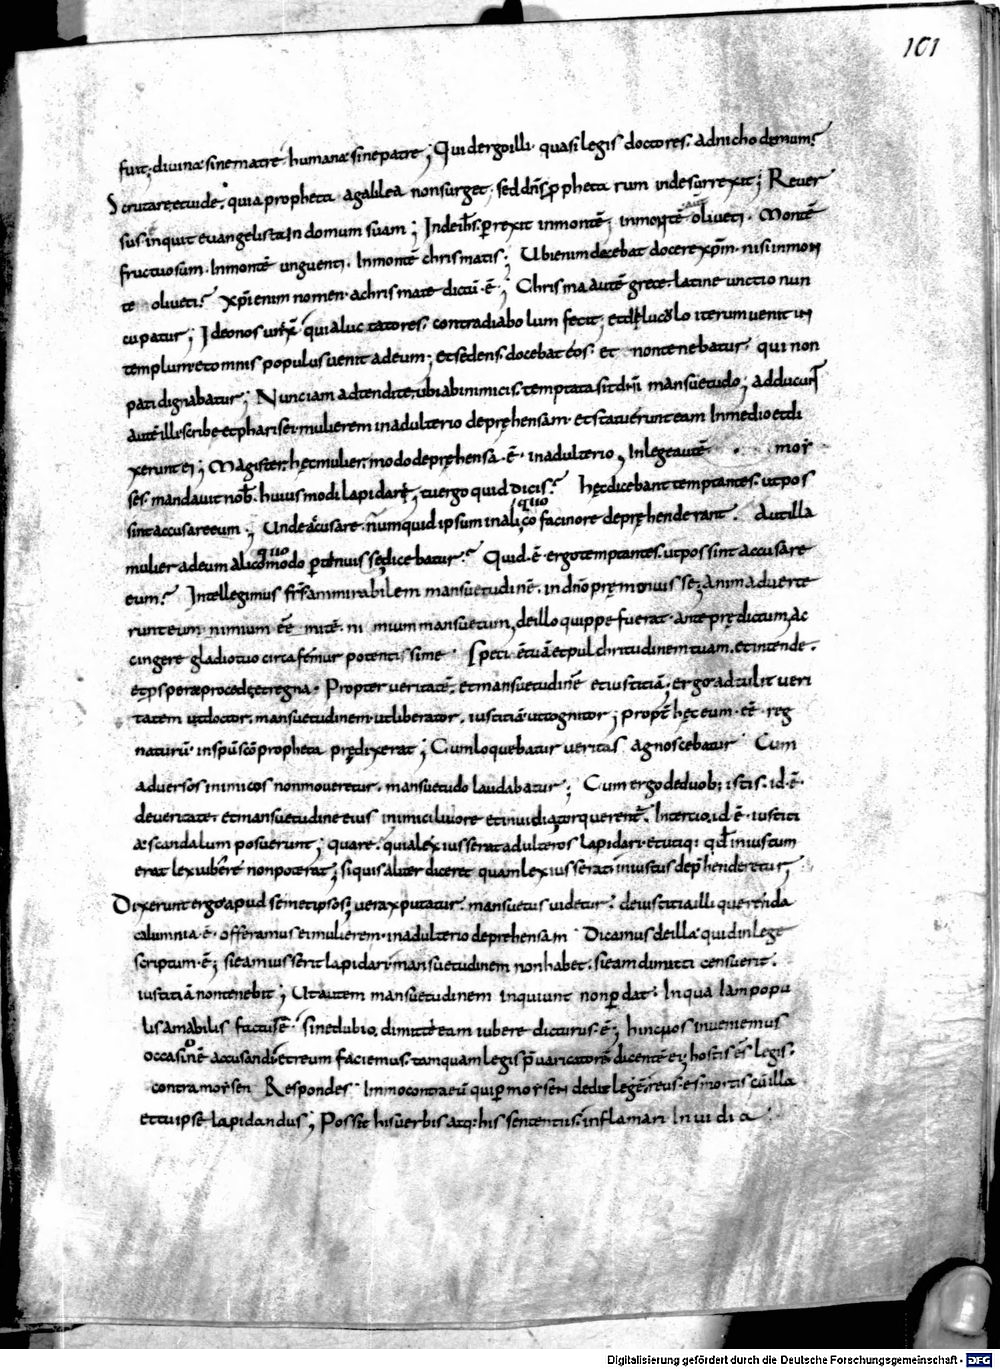 101
fuit; divina sine matre. humana sine patre; Quid ergo illi. quasi legis doctores. ad nichodemum?
Scrutare et vide. quia propheta a galilea non surget. sed dn̄s ꝓphetarum inde surrexit; Rever
sus. inquit evangelista In domum suam; Inde ih̄s. ꝑrexit in montē. in montē autē oliveti. Montē
fructuosum. In montē unguenti. In montē chrismatis; Ubi enim decebat docere xp̄m. nisi in mon
te oliveti? Xp̄i enim nomen. a chrismate dictū. ē; Chrisma autē grece. latine unctio nun
cupatur; Ideo nos unx̄. quia luctatores. contra diabolum fecit; et diluculo iterum venit in
templum. et omnis populus venit ad eum; et sedens. docebat eos. et non tenebatur. qui non
pati dignabatur; Nunc iam adtendite. ubi ab inimicis. temptata sit dn̄i mansuetudo; adducunt
autē illi. scribe et pharisei. mulierem in adulterio deprehensam. et statuerunt eam In medio et di
xerunt ei; Magister. hęc mulier. modo deprehensa. ē. in adulterio, In lege autē . moy
ses. mandavit nob̄. huiusmodi lapidare; tu ergo quid dicis? hęc dicebant temptantes. ut pos
sint accusare eum; Unde accusare. numquid ipsum in aliquo facinore deprehenderant. Aut illa
mulier ad eum aliquomodo ꝑtinuisse dicebatur? Quid. ē. ergo temptantes. ut possint accusare
eum? Intellegimus fr̄s ammirabilem mansuetudinē. in dn̄o pręmonuisse; Animadverte
runt eum. nimium eē mitē. nimium mansuetum, de illo quippe fuerat. ante prędictum, ac
cingere gladio tuo circa femur potentissime. Speciē tuā et pulchritudinem tuam. et intende.
et ꝓspere procede, et regna. Propter veritatē. et mansuetudinē et iustitiā; ergo adtulit veri
tatem ut doctor. mansuetudinem. ut liberator. iustitiā. ut cognitor; propt̄ hęc eum. eē. reg
naturū. in sp̄u sc̄o propheta prędixerat; Cum loquebatur veritas agnoscebatur Cum
adversos inimicos non moveretur. mansuetudo laudabatur; Cum ergo de duob; istis. id. ē.
de veritate. et mansuetudine eius inimici livore et invidia torquerent̄. In tertio. id. ē. iustiti
æ scandalum posuerunt; quare. quia lex iusserat adulteros lapidari. et utiq; qđ iniustum
erat lex iubere non poterat; siquis aliter diceret quam lex iusserat. iniustus dep̄henderetur;
Dixerunt ergo apud semetipsos; verax putatur. mansuetus videtur. de iustitia illi querenda
calumnia. ē. offeramus ei mulierem. in adulterio deprehensam Dicamus de illa quid in lege
scriptum. ē; si eam iusserit lapidari. mansuetudinem non habet. si eam dimitti censuerit.
iustitiā non tenebit; Ut autem mansuetudinem inquiunt non ꝑdat. In qua iam popu
lis amabilis factus ē. sine dubio. dimitti eam iubere dicturus. ē; hinc nos inveniemus
occasionē accusandi. et reum faciemus. tamquam legis p̄varicatorē dicentē ei; hostis es legis.
contra moysen Respondes Immo contra eū qui ꝑ moysen dedit legē. reus. es mortis cū illa
et tu ipse lapidandus; Posset his verbis atq; his sententiis. inflamari Invidia.
Digitalisierung gefördert durch die Deutsche Forschungsgemeinschaft - DFG